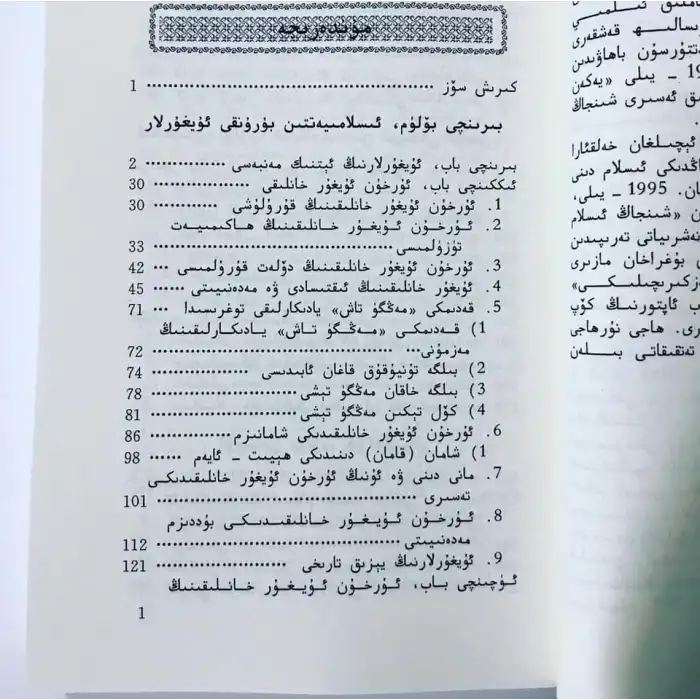 مۇندەرىجە
كىرىش سۆز ........................................ 1
بىرىنچى بۆلۈم، ئىسلامىيەتتىن بۇرۇنقى ئۇيغۇرلار
بىرىنچى باب، ئۇيغۇرلارنىڭ ئېتنىك مەنبەسى ............... 2
ئىككىنچى باب، ئورخۇن ئۇيغۇر خانلىقى .................. 30
1. ئورخۇن ئۇيغۇر خانلىقىنىڭ قۇرۇلۇشى ............ 30
2. ئورخۇن ئۇيغۇر خانلىقىنىڭ ھاكىمىيەت
تۈزۈلمىسى ........................................ 33
3. ئورخۇن ئۇيغۇر خانلىقىنىڭ دۆلەت قۇرۇلمىسى ... 42
4. ئۇيغۇر خانلىقىنىڭ ئىقتىسادى ۋە مەدەنىيىتى ...... 45
5. قەدىمكى «مەڭگۈ تاش» يادىكارلىقى توغرىسىدا ... 71
1) قەدىمكى «مەڭگۈ تاش» يادىكارلىقىنىڭ
مەزمۇنى ........................................ 72
2) بىلگە تۇنيۇقۇق قاغان ئابىدىسى .................. 74
3) بىلگە خاقان مەڭگۈ تېشى ........................ 78
4) كۆل تېكىن مەڭگۈ تېشى ........................ 81
6. ئورخۇن ئۇيغۇر خانلىقىدىكى شامانىزم ............... 86
1) شامان (قامان) دىنىدىكى ھېيىت ـ ئايەم ...... 98
7. مانى دىنى ۋە ئۇنىڭ ئورخۇن ئۇيغۇر خانلىقىدىكى
تەسىرى ........................................ 101
8. ئورخۇن ئۇيغۇر خانلىقىدىكى بۇددىزم
مەدەنىيىتى ........................................ 112
9. ئۇيغۇرلارنىڭ يېزىق تارىخى .................. 121
ئۈچىنچى باب، ئورخۇن ئۇيغۇر خانلىقىنىڭ
1
ئىلمىي
قەشقەرى
باھاۋىدىن
يىلى «يەكەن
ئەسىرى شىنجاڭ
ئېچىلغان خەلقئارا
ئىسلام دىنى
1995 ـ يىلى،
«شىنجاڭ ئىسلام
نەشرىياتى تەرىپىدىن
بۇغراخان مازىرى
ئاپتورنىڭ كۆپ
ھاجى نۇرھاجى
تەتقىقاتى بىلەن